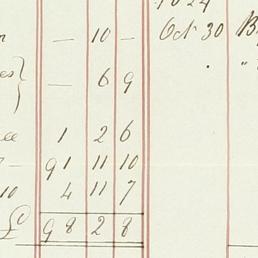 1824
n — 10 — Oct 30 B
es} — 6 9 . "
ee 1 2 6
— 91 11 10
10 4 11 7
£ 98 2 8